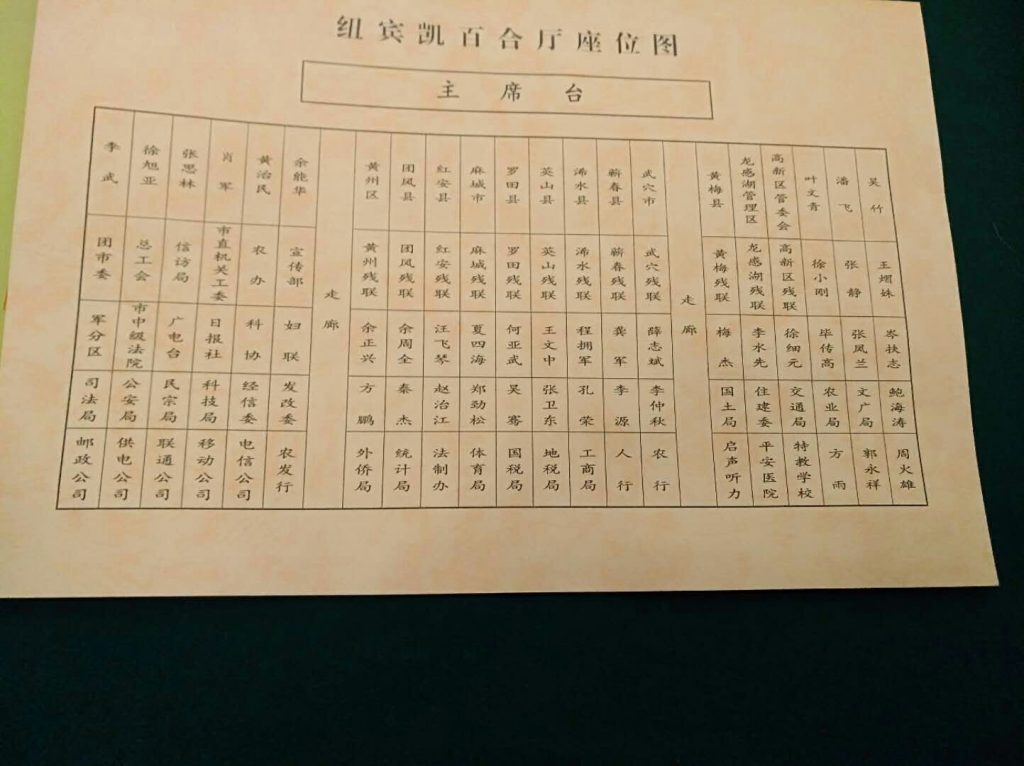 纽宾凯百合厅座位图
主席台
李武 徐旭亚 张思林 肖军 黄治民 余能华 走廊 黄州区 团风县 红安县 麻城市 罗田县 英山县 浠水县 蕲春县 武穴市 走廊 黄梅县 龙感湖管理区 高新区管委会 叶文青 潘飞 吴竹
团市委 总工会 信访局 市直机关工委 农办 宣传部 黄州残联 团风残联 红安残联 麻城残联 罗田残联 英山残联 浠水残联 蕲春残联 武穴残联 黄梅残联 龙感湖残联 高新区残联 徐小刚 张静 王熠妹
军分区 市中级法院 广电台 日报社 科协 妇联 余正兴 余周全 汪飞琴 夏四海 何亚武 王文中 程拥军 龚军 薛志斌 梅杰 李水先 徐细元 毕传高 张凤兰 岑扶志
司法局 公安局 民宗局 科技局 经信委 发改委 方鹏 秦杰 赵治江 郑劲松 吴骞 张卫东 孔荣 李源 李仲秋 国土局 住建委 交通局 农业局 文广局 鲍海涛
邮政公司 供电公司 联通公司 移动公司 电信公司 农发行 外侨局 统计局 法制办 体育局 国税局 地税局 工商局 人行 农行 启声听力 平安医院 特教学校 方雨 郭永祥 周火雄